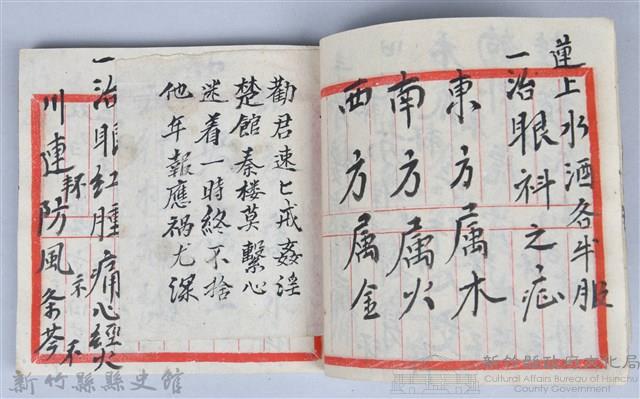 蓮上水酒各半服
一治眼科之症
東方属木
南方属火
西方属金
勸君速匕戒姦淫
楚館秦楼莫繫心
迷着一時終不捨
他年報應禍尤深
一治眼紅腫痛心經火
川連防風条芩
新竹縣縣史館
新竹縣政府文化局
Cultural Affairs Bureau of Hsinchu
County Government